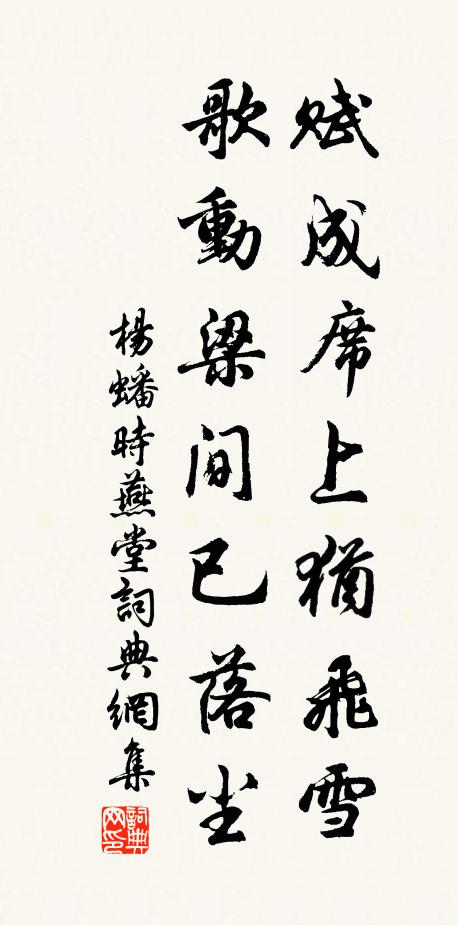 赋成席上犹飛雪
歌動梁间已落尘
楊蟠時燕堂詞典網集
詞典网印